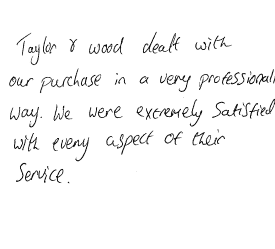 Taylor & wood dealt with
our purchase in a very professional
way. We were extremely satisfied
with every aspect of their
Service.